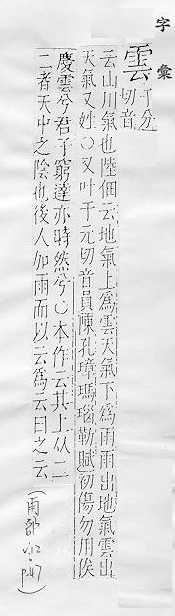 字彙
雲 于分切音
云山川氣也陸佃云地氣上爲雲天氣下爲雨雨出地氣雲出
天氣又姓○又叶于元切音員陳孔璋瑪瑙勒賦初傷勿用俟
慶雲兮君子窮達亦時然兮○本作云其上从二
二者天中之陰也後人加雨而以云爲云曰之云
(雨部 v.12 - p.47)